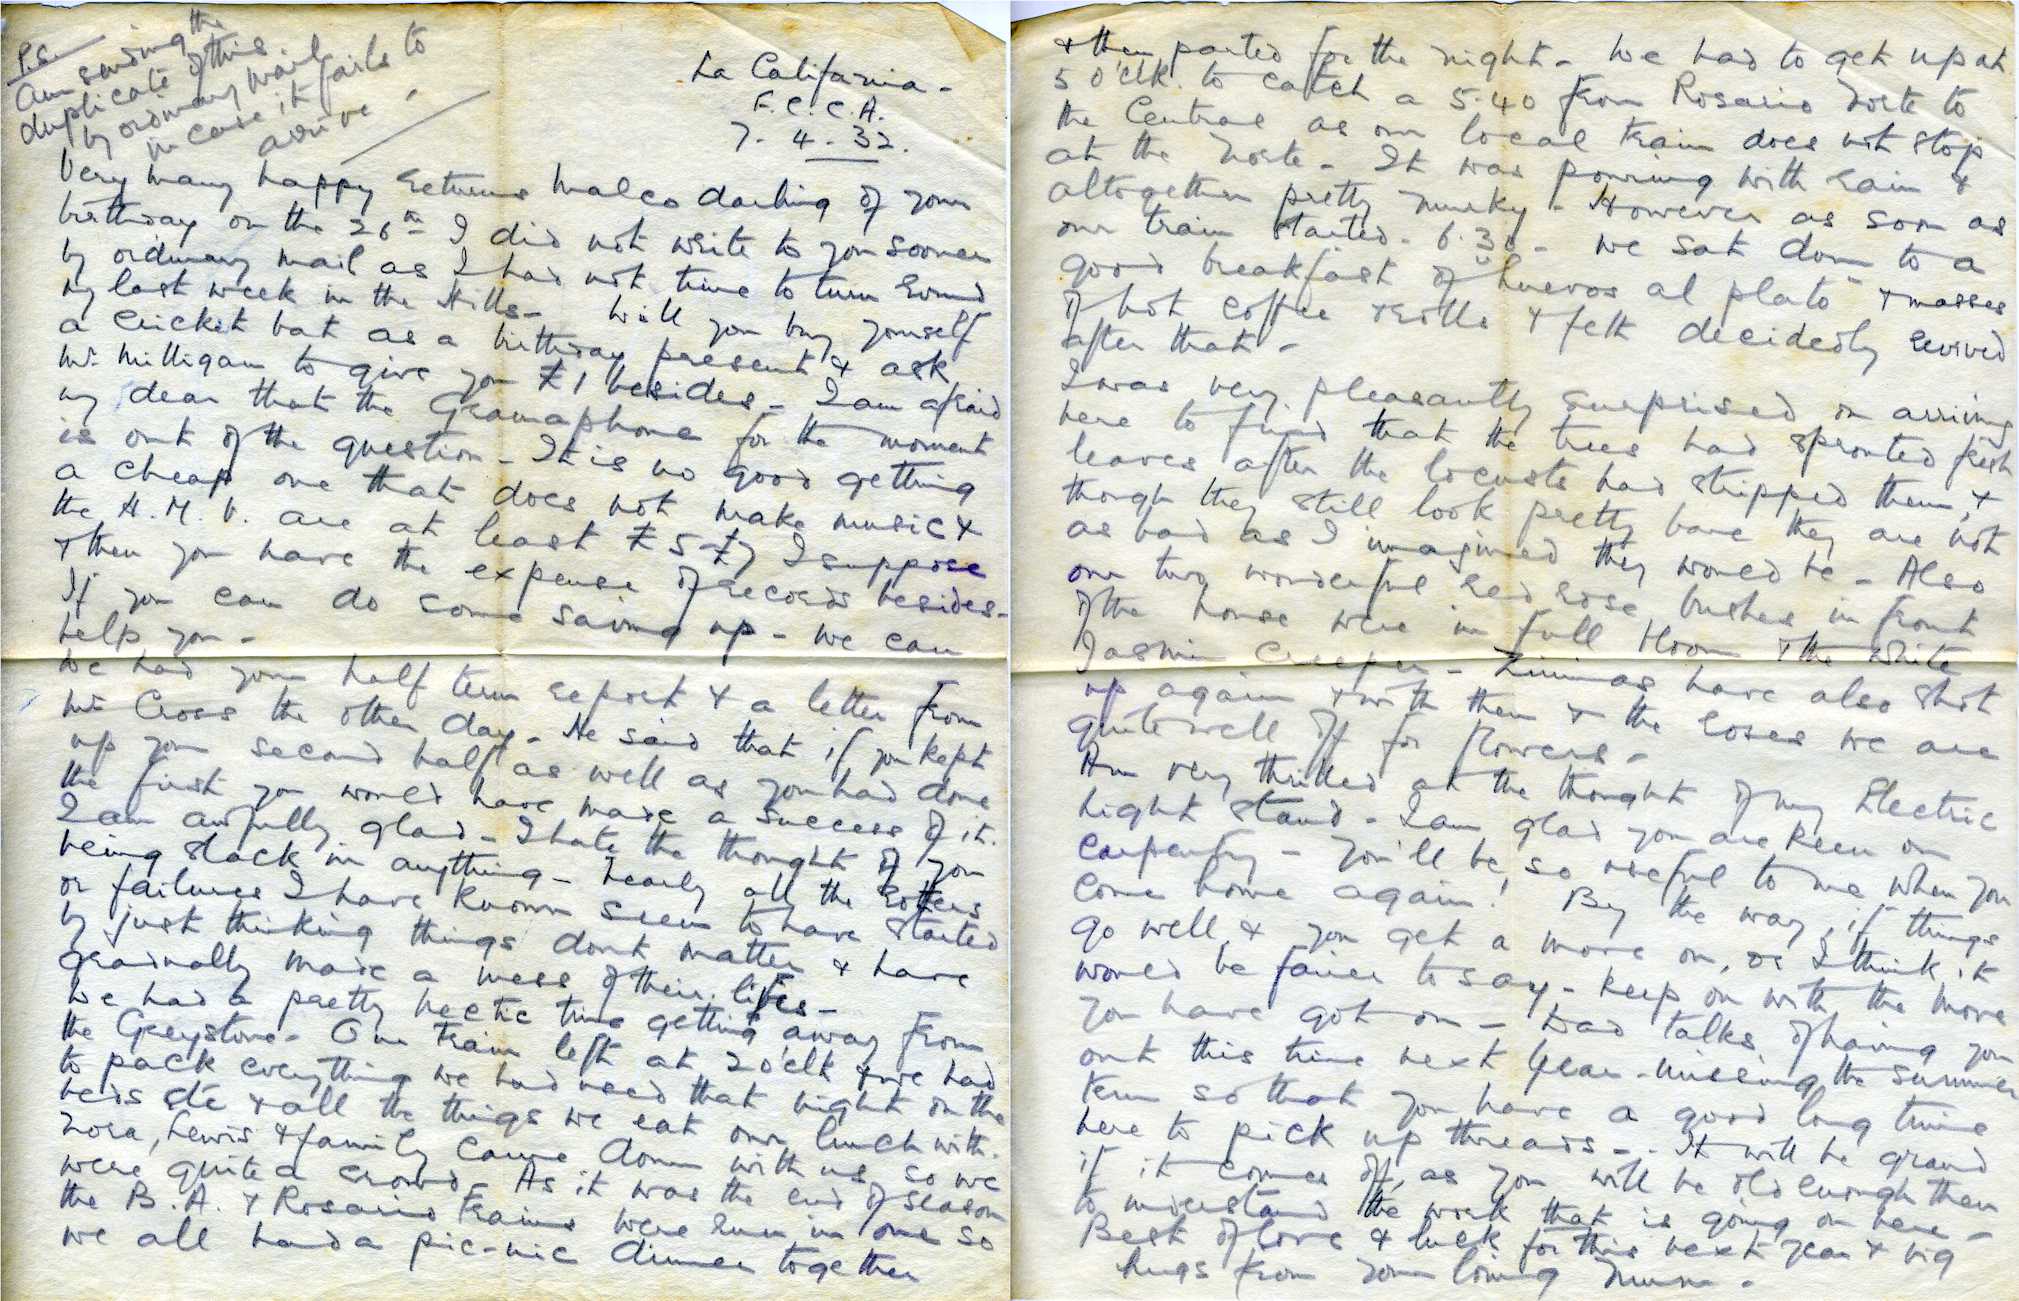 P.S.
Am sending the
duplicate of this
by ordinary mail
in case it fails to
arrive.
La California -
F.C.C.A.
7. 4. 32.
Very many happy returns Malco darling of your
birthday on the 26th I did not write to you sooner
by ordinary mail as I had not time to turn round
my last week in the Hills - Will you buy yourself
a cricket bat as a birthday present & ask
Mr Milligan to give you £1 besides - I am afraid
my dear that the Gramaphone for the moment
is out of the question - It is no good getting
a cheap one that does not make music &
the H.M.V. are at least £5 - £7 I suppose
& then you have the expense of records besides -
If you can do some saving up - we can
help you -
We had your half term report & a letter from
Mr Cross the other day - He said that if you kept
up your second half as well as you had done
the first you would have made a success of it.
I am awfully glad - I hate the thought of you
being slack in anything - Nearly all the rotters
or failures I have known seem to have started
by just thinking things dont matter & have
gradually made a mess of their lives -
We had a pretty hectic time getting away from
the Greystone - Our train left at 2 o'clk & we had
to pack everything we had need that night on the
beds etc & all the things we eat our lunch with.
Nora, Lewis & family came down with us so we
were quite a crowd - As it was the end of season
the B.A. & Rosario trains were run in one so
we all had a pic-nic dinner together
& then parted for the night - We had to get up at
5 o'clk. to catch a 5.40 from Rosario Norte to
the Central as our local train does not stop
at the Norte - It was pouring with rain &
altogether pretty murky - However as soon as
our train started - 6.30 - we sat down to a
good breakfast of huevos al plato & masses
of hot coffee & rolls & felt decidedly revived
after that -
I was very pleasantly surprised on arriving
here to find that the trees had sprouted fresh
leaves after the locusts had stripped them, &
though they still look pretty bare they are not
as bad as I imagined they would be - Also
our two wonderful red rose bushes in front
of the house were in full bloom & the white
Jasmin creeper - Zinnias have also shot
up again & with them & the roses we are
quite well off for flowers -
Am very thrilled at the thought of my Electric
Light stand - I am glad you are keen on
carpentry - You'll be so useful to me when you
come home again! By the way, if things
go well, & you get a move on, or I think it
would be fairer to say - keep on with the move
you have got on - Dad talks of having you
out this time next year - missing the summer
term so that you have a good long time
here to pick up threads - It will be grand
if it comes off, as you will be old enough then
to understand the work that is going on here -
Best of love & luck for this next year & big
hugs from your loving Mum -